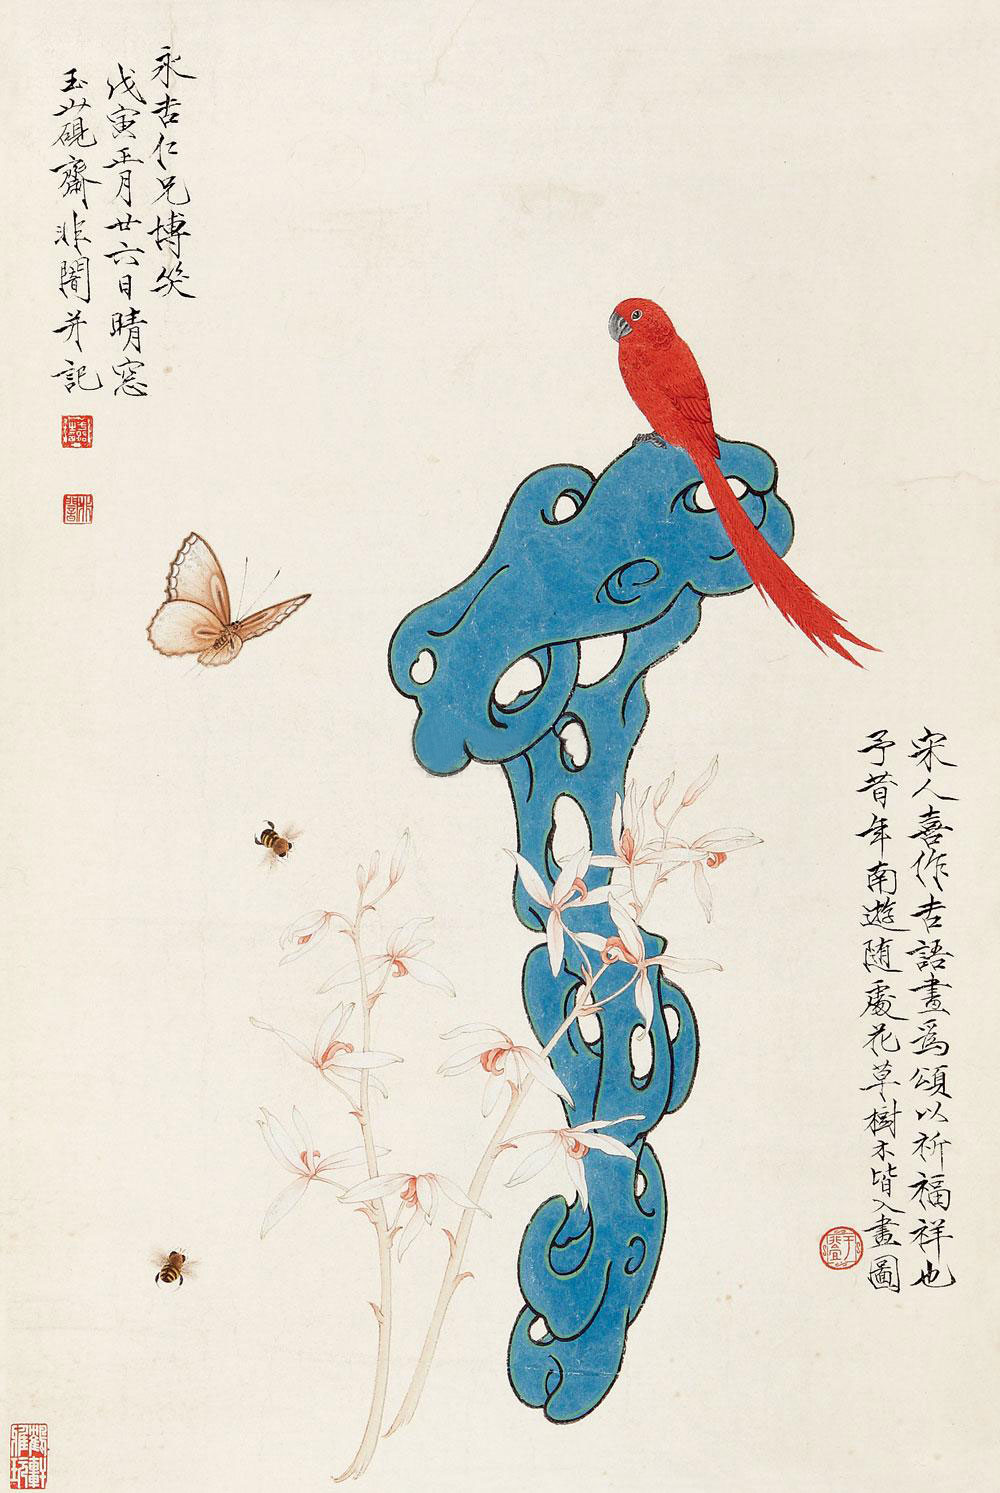 宋人喜作吉語畫爲頌以祈福祥也
予昔年南遊随處花草樹木皆入畫圖
永吉仁兄博笑
戊寅正月廿六日晴窓
玉山硯齋非闇并記